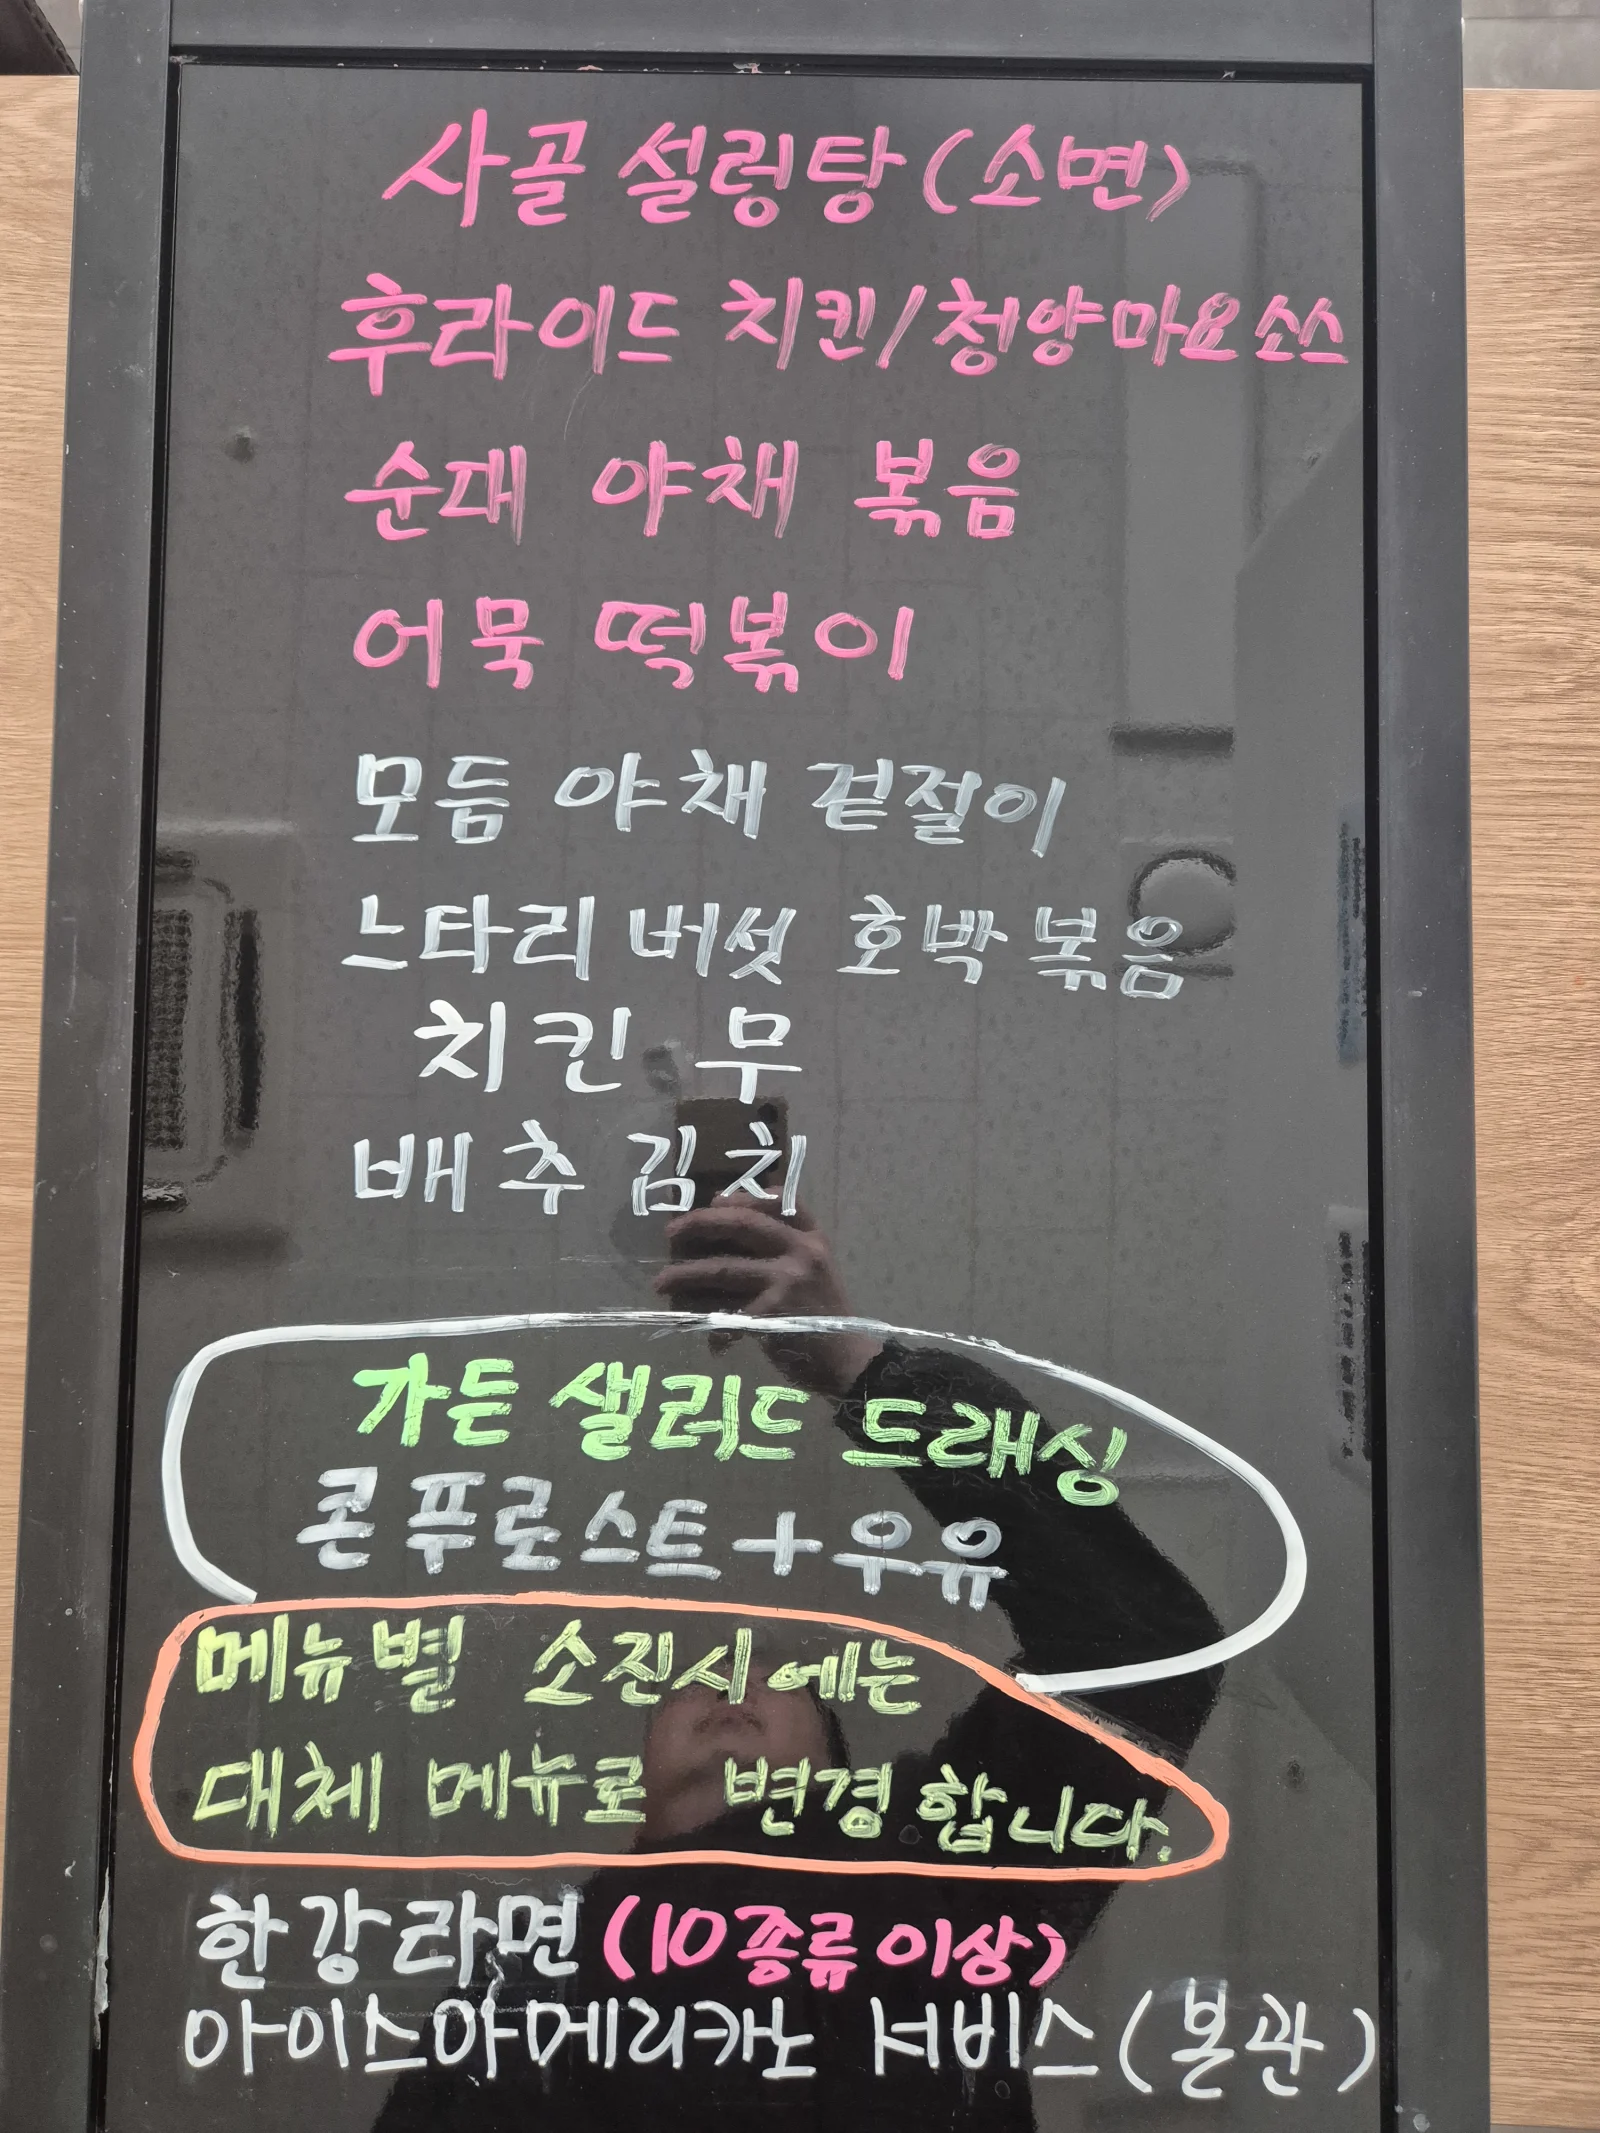 사골 설렁탕 (소면)
후라이드 치킨/청양마요소스
순대 야채 볶음
어묵 떡볶이
모듬 야채 겉절이
느타리버섯 호박볶음
치킨 무
배추김치
가든 샐러드 드래싱
콘푸로스트+우유
메뉴별 소진시에는
대체 메뉴로 변경합니다.
한강라면 (10종류이상)
아이스아메리카노 서비스(본관)